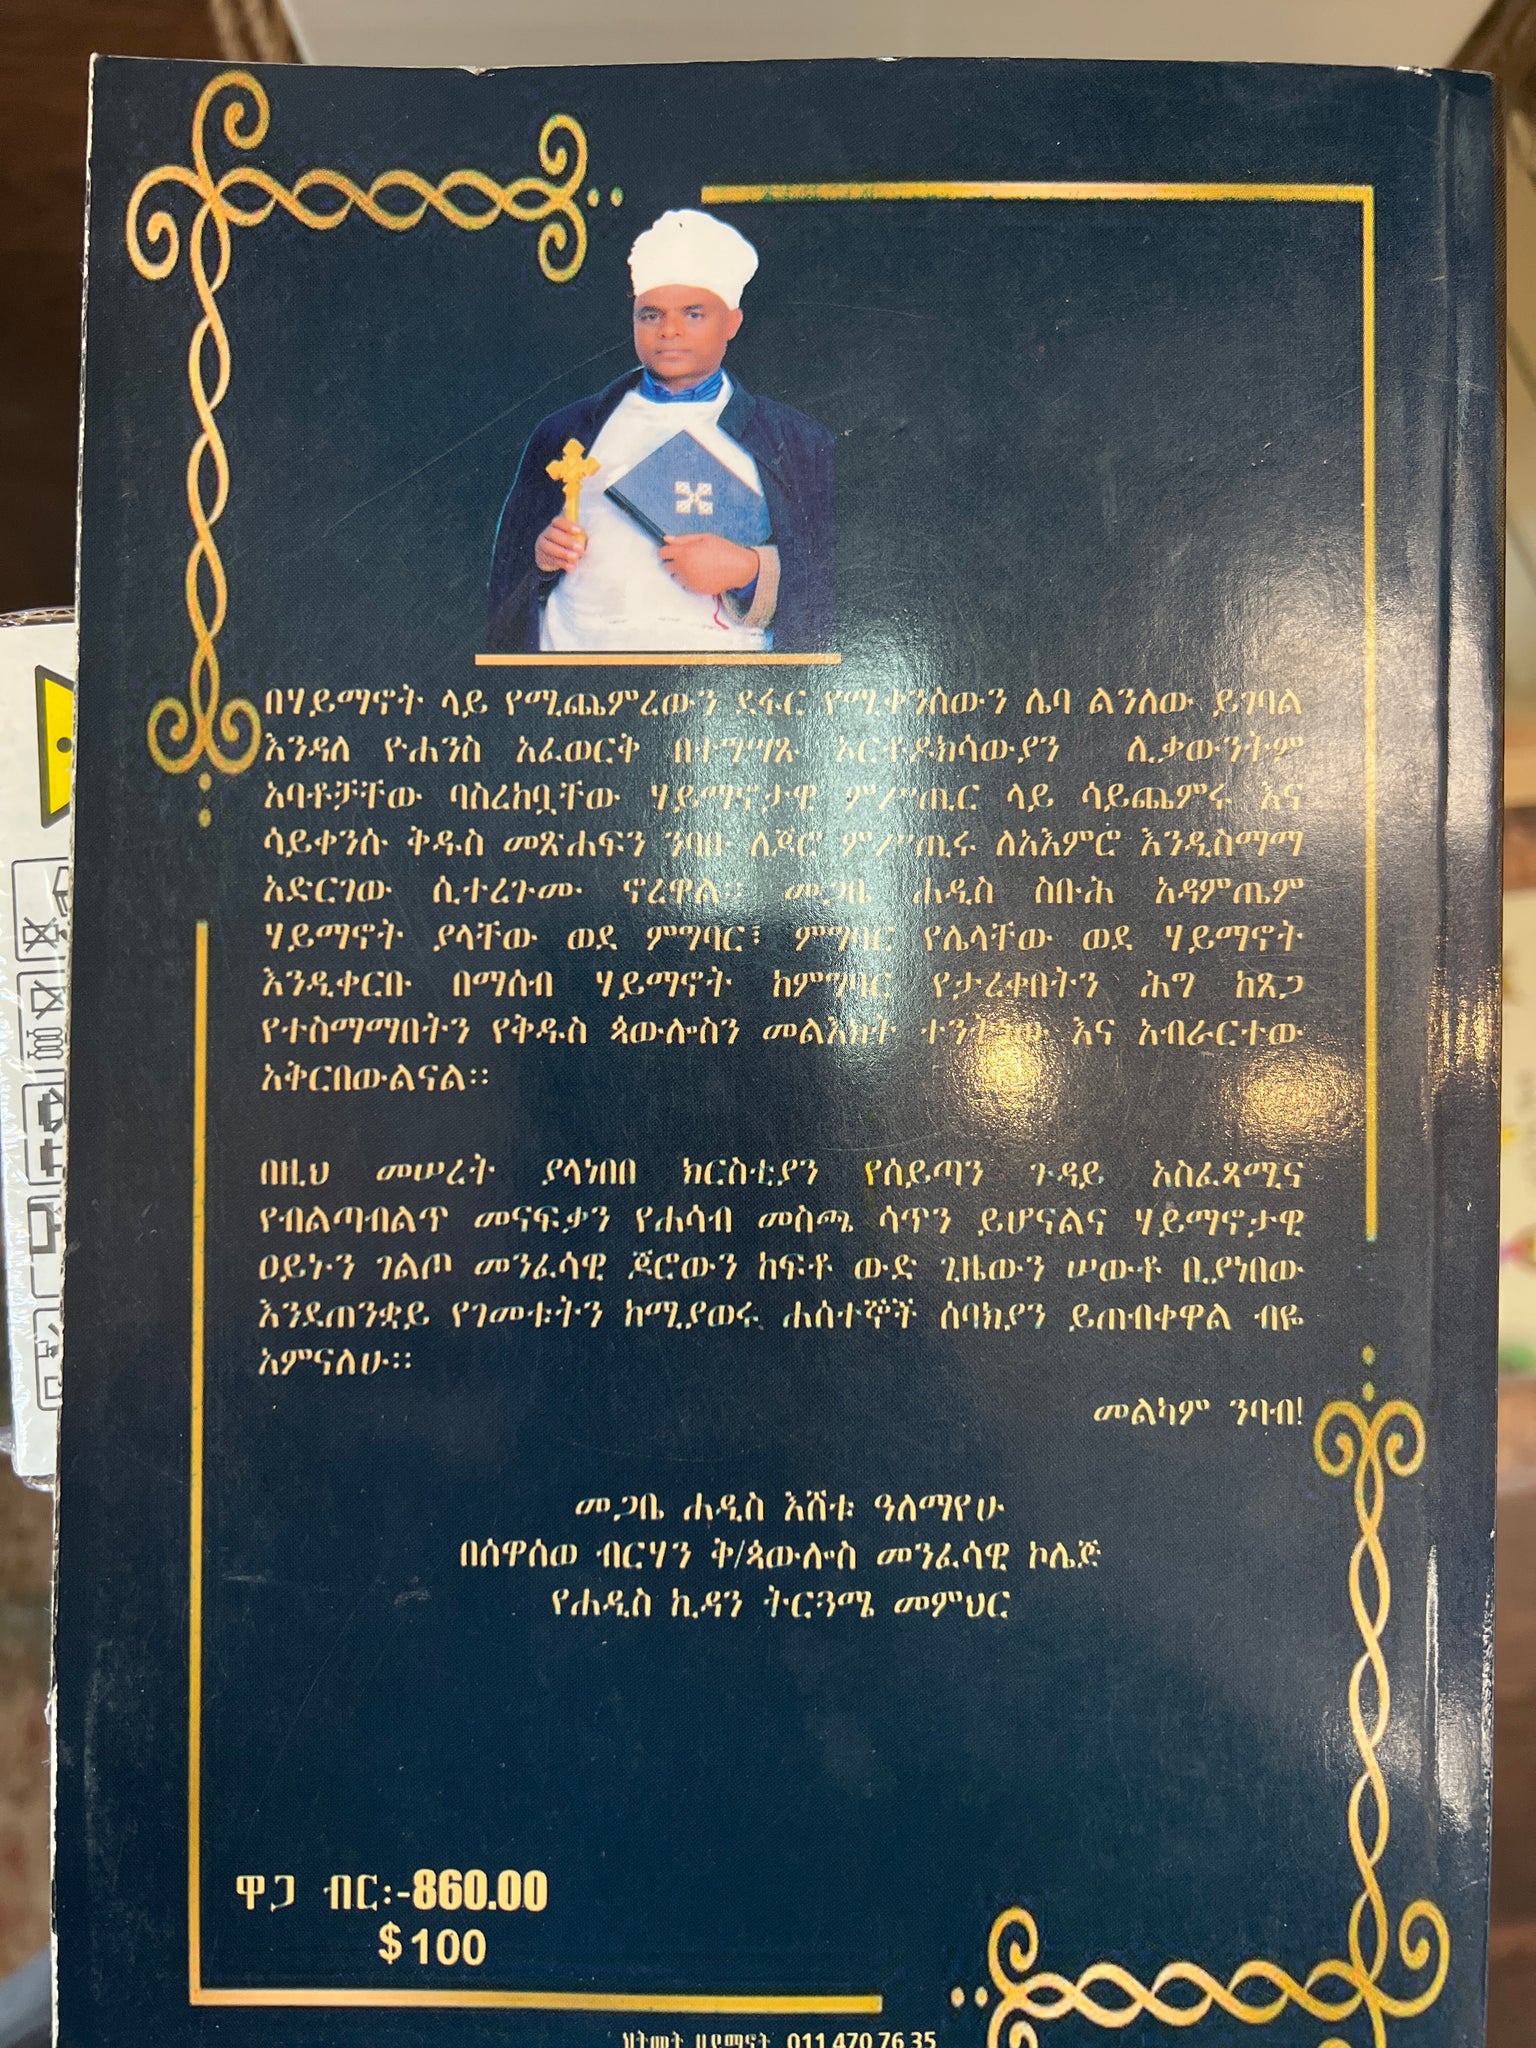 በሃይማኖት ላይ የሚጨምረውን ደፋር የሚቀንሰውን ሌባ ልንለው ይገባል
እንዳለ ዮሐንስ አፈወርቅ በተግሣጹ ኦርቶዶክሳውያን ሊቃውንትም
አባቶቻቸው ባስረከቧቸው ሃይማኖታዊ ምሥጢር ላይ ሳይጨምሩ እና
ሳይቀንሱ ቅዱስ መጽሐፍን ንባቡ ለጆሮ ምሥጢሩ ለአእምሮ እንዲስማማ
አድርገው ሲተረጉሙ ኖረዋል፡፡ መጋቤ ሐዲስ ስቡሕ አዳምጤም
ሃይማኖት ያላቸው ወደ ምግባር፣ ምግባር የሌላቸው ወደ ሃይማኖት
እንዲቀርቡ በማሰብ ሃይማኖት ከምግባር የታረቀበትን ሕግ ከጸጋ
የተስማማበትን የቅዱስ ጳውሎስን መልእክት እና አብራርተው
አቅርበውልናል፡፡
በዚህ መሠረት ያላነበበ ክርስቲያን የሰይጣን ጉዳይ አስፈጻሚና
የብልጣብልጥ መናፍቃን የሐሳብ መስጫ ሳጥን ይሆናልና ሃይማኖታዊ
ዐይኑን ገልጦ መንፈሳዊ ጆሮውን ከፍቶ ውድ ጊዜውን ሠውቶ ቢያነበው
እንደጠንቋይ የገመቱትን ከሚያወሩ ሐሰተኞች ሰባክያን ይጠብቀዋል ብዬ
አምናለሁ፡፡
መልካም ንባብ!
መጋቤ ሐዲስ እሸቱ ዓለማየሁ
በሰዋሰወ ብርሃን ቅ/ጳውሎስ መንፈሳዊ ኮሌጅ
የሐዲስ ኪዳን ትርጓሜ መምህር
ዋጋ ብር፡-860.00
$ 100
ህትመት 011 470 76 35